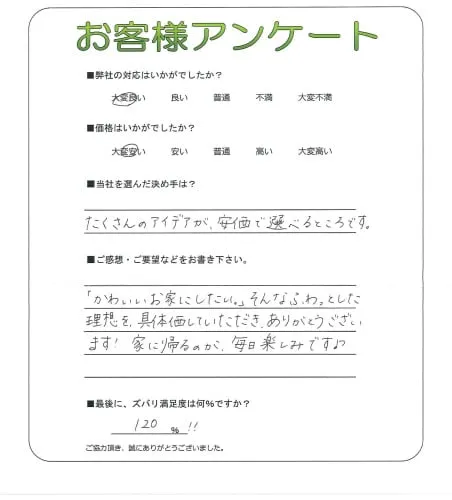 お客様アンケート
■弊社の対応はいかがでしたか?
大変良い 良い 普通 不満 大変不満
■価格はいかがでしたか?
大変安い 安い 普通 高い 大変高い
■当社を選んだ決め手は?
たくさんのアイデアが、安価で選べるところです。
■ご感想・ご要望などをお書き下さい。
「かわいいお家にしたい。」そんなふわっとした
理想を、具体価していただき、ありがとうござい
ます! 家に帰るのが、毎日楽しみです♪
■最後に、ズバリ満足度は何%ですか?
120 % !!
ご協力頂き、誠にありがとうございました。